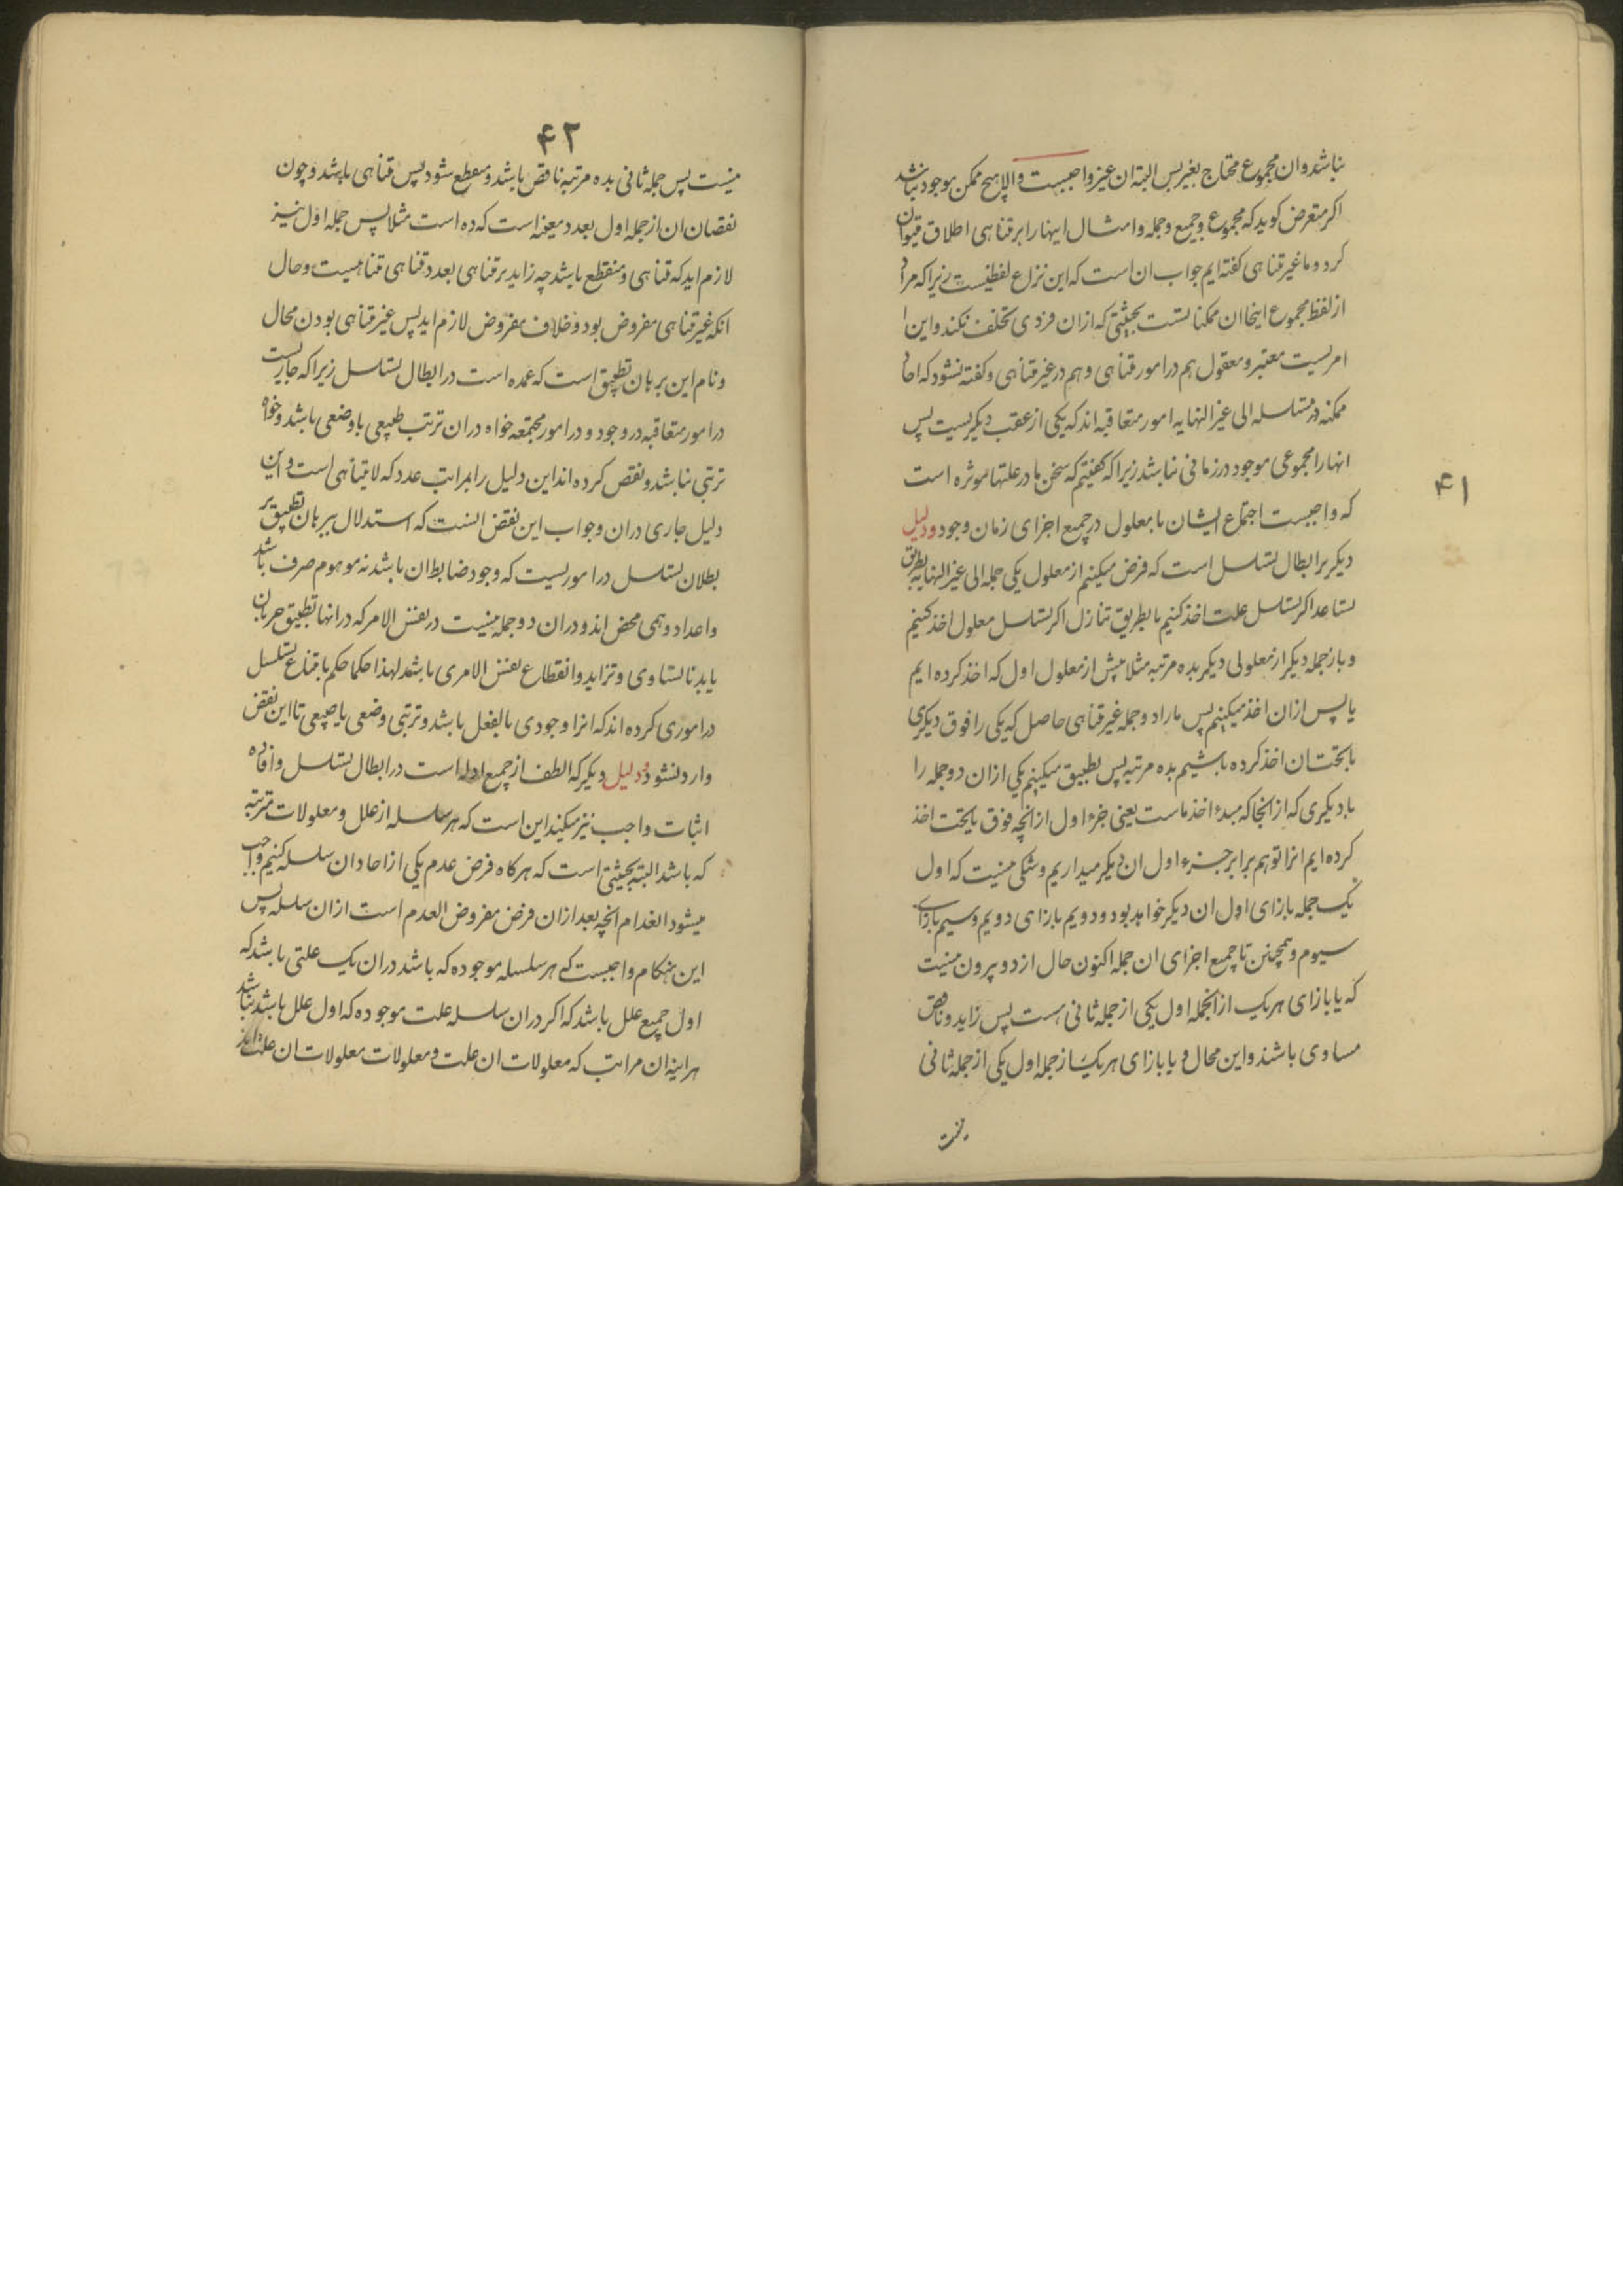 ۴۱
نباشد وان مجموع محتاج بغیر پس البته ان غیر واجبست والا هیچ ممکن موجود نباشد
اکر متعرض کوید که مجموع و جمیع و جمله و امثال اینها را بر متناهی اطلاق میتوان
کرد و ما غیر متناهی کفته ایم جواب ان است که این نزاع لفظیست زیرا که مراد
از لفظ مجموع اینجا ان ممکناتست بحیثیتی که ازان فردی تخلف نکند و این
امریست معتبر و معقول هم در امور متناهی و هم در غیر متناهی و کفته نشود که احاد
ممکنه در متسلسله الی غیر النهایه امور متعاقبه اند که یکی از عقب دیکریست پس
انها را مجموعی موجود در زمانی نباشد زیرا که کفتیم که سخن ما در علتها موثره است
که واجبست اجتماع ایشان با معلول در جمیع اجزای زمان وجود و دلیل
دیکر بر ابطال تسلسل است که فرض میکنیم از معلول یکی جمله الی غیر النهایه بطریق
تساعد اکر تسلسل علت اخذ کنیم یا بطریق تنازل اکر تسلسل معلول اخذ کنیم
و باز جمله دیکر از معلولی دیکر بده مرتبه مثلا پیش از معلول اول که اخذ کرده ایم
یا پس ازان اخذ میکنیم پس ما را دو جمله غیر متناهی حاصل که یکی را فوق دیکری
یا بتحت ان اخذ کرده باشیم بده مرتبه پس تطبیق میکنیم یکی ازان دو جمله را
با دیکری که از انجا که مبدء اخذ ماست یعنی جزء اول از انچه فوق یا تحت اخذ
کرده ایم انرا توهم برابر جزء اول ان دیکر میداریم و شکی نیست که اول
یک جمله بازای اول ان دیکر خواهد بود و دویم بازای دویم و سیم بازای
سیوم و همچنین تا جمیع اجزای ان جمله اکنون حال از دو بیرون نیست
که یا بازای هر یک از انجمله اول یکی از جمله ثانی هست پس زاید و ناقص
مساوی باشند و این محال و یا بازای هر یک از جمله اول یکی از جمله ثانی
نیست
۴۲
نیست پس جمله ثانی بده مرتبه ناقص باشد و منقطع شود پس متناهی باشد و چون
نقصان ان از جمله اول بعدد معینه است که ده است مثلا پس جمله اول نیز
لازم اید که متناهی و منقطع باشد چه زاید بر متناهی بعدد متناهی متناهیست و حال
انکه غیر متناهی مفروض بود و خلاف مفروض لازم اید پس غیر متناهی بودن محال
و نام این برهان تطبیق است که عمده است در ابطال تسلسل زیرا که جاریست
در امور متعاقبه در وجود و در امور مجتمعه خواه دران ترتب طبیعی یا وضعی باشد و خواه
ترتبی نباشد و نقض کرده اند این دلیل را بمراتب عدد که لا یتناهی است و این
دلیل جاری دران و جواب این نقض انست که استدلال ببرهان تطبیق بر
بطلان تسلسل در اموریست که وجود ضابط ان باشد نه موهوم صرف باشد
و اعداد وهمی محض اند و دران دو جمله نیست در نفس الامر که در انها تطبیق جریان
یابد تا تساوی و تزاید و انقطاع نفس الامری باشد لهذا حکما حکم بامتناع تسلسل
در اموری کرده اند که انرا وجودی بالفعل باشد و ترتبی وضعی یا طبیعی تا این نقض
وارد نشود و دلیل دیکر که الطف از جمیع ادله است در ابطال تسلسل و افاده
اثبات واجب نیز میکند این است که هر سلسله از علل و معلولات مترتبه
که باشد البته بحیثیتی است که هرکاه فرض عدم یکی از احاد ان سلسله کنیم واجب
میشود انعدام انچه بعد ازان فرض مفروض العدم است ازان سلسله پس
این هنکام واجبست که هر سلسله موجوده که باشد دران یک علتی باشد که
اول جمیع علل باشد که اکر دران سلسله علت موجوده که اول علل باشد نباشد
هراینه ان مراتب که معلولات ان علت و معلولات معلولات ان علت